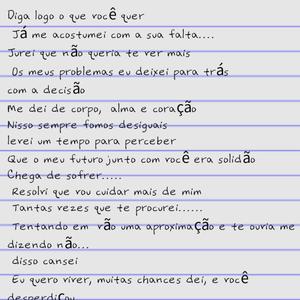 Diga logo o que você quer
Já me acostumei com a sua falta....
Jurei que não queria te ver mais
Os meus problemas eu deixei para trás
com a decisão
Me dei de corpo, alma e coração
Nisso sempre fomos desiguais
levei um tempo para perceber
Que o meu futuro junto com você era solidão
Chega de sofrer.....
Resolvi que vou cuidar mais de mim
Tantas vezes que te procurei......
Tentando em vão uma aproximação e te ouvia me
dizendo não...
disso cansei
Eu quero viver, muitas chances dei, e você
desperdiçou